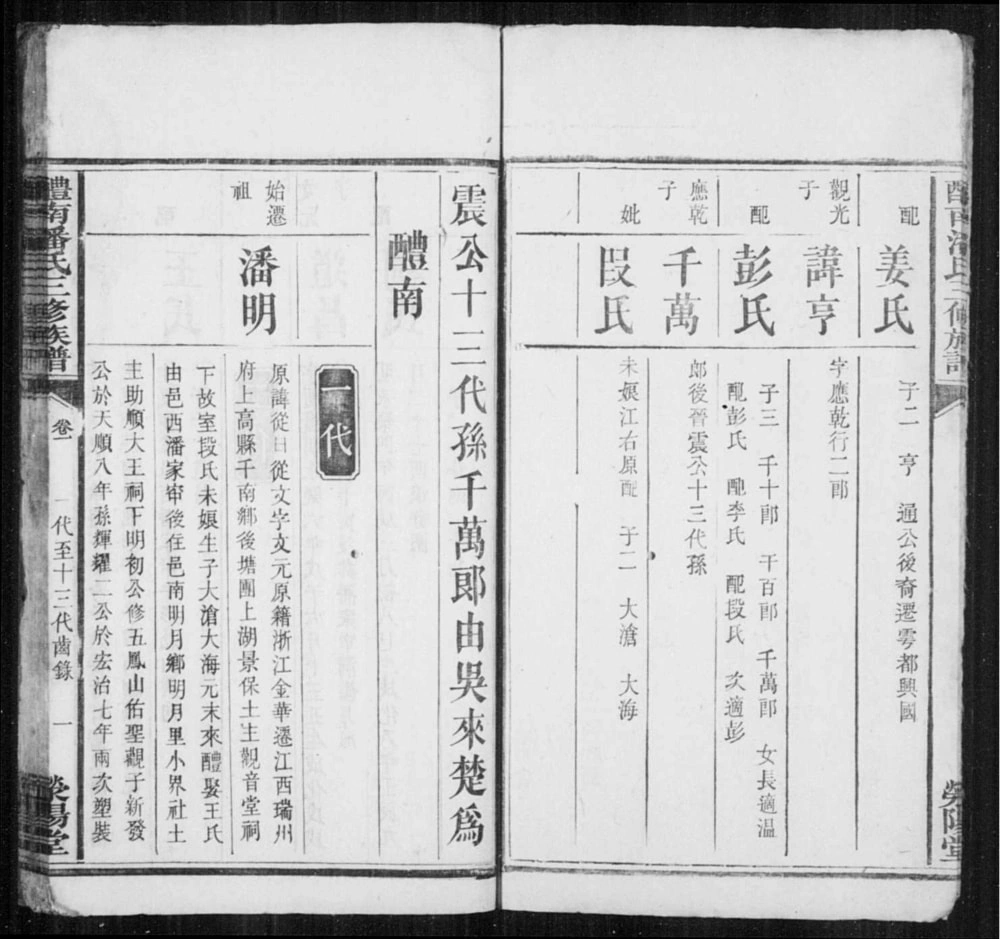 醴南潘氏三修族譜
滎陽堂
配
姜氏
子二 亨 通公後裔遷雩都興國
觀光子
諱亨
字應乾行二郎
子三 千十郎 千百郎 千萬郎 女長適温
配
彭氏
配彭氏 配李氏 配段氏 次適彭
應乾子
千萬
郎後晉震公十三代孫
妣
段氏
未娘江右原配 子二 大滄 大海
震公十三代孫千萬郎由吳來楚爲
醴南
一代
始遷祖
潘明
原諱從日從文字文元原籍浙江金華遷江西瑞州
府上高縣千南鄉後塘團上湖景保土主觀音堂祠
下故室段氏未娘生子大滄大海元末來醴娶王氏
由邑西潘家窜後在邑南明月鄉明月里小界社土
主助順大王祠下明初公修五鳳山佑聖觀于新發
公於天順八年孫輝耀二公於宏治七年兩次塑裝
醴南潘氏三修族譜
卷一
一代至十三代齒錄
一
滎陽堂